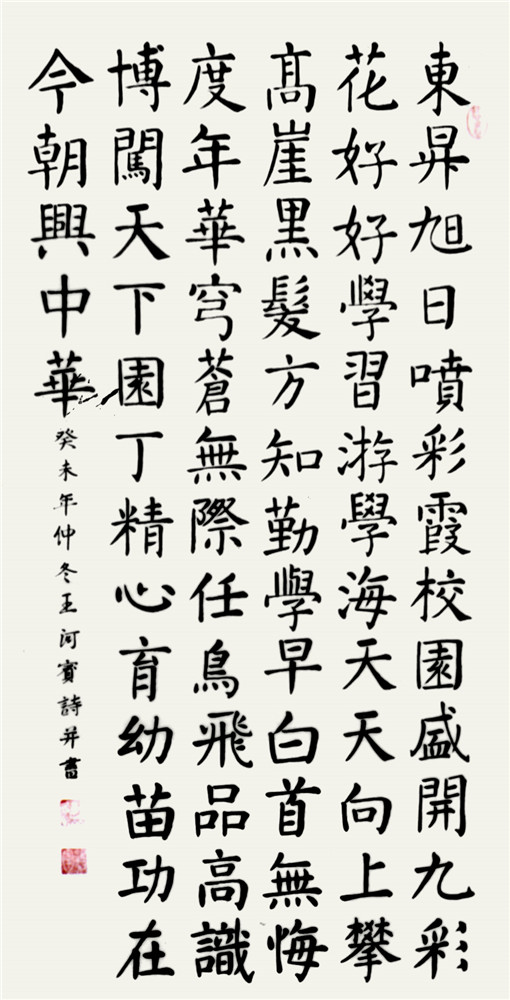 東昇旭日噴彩霞校園盛開九彩
花好好學習游學海天天向上攀
髙崖黑髮方知勤學早白首無悔
度年華穹蒼無際任鳥飛品高識
博闖天下園丁精心育幼苗功在
今朝興中華
癸未年仲冬王河賓詩并書